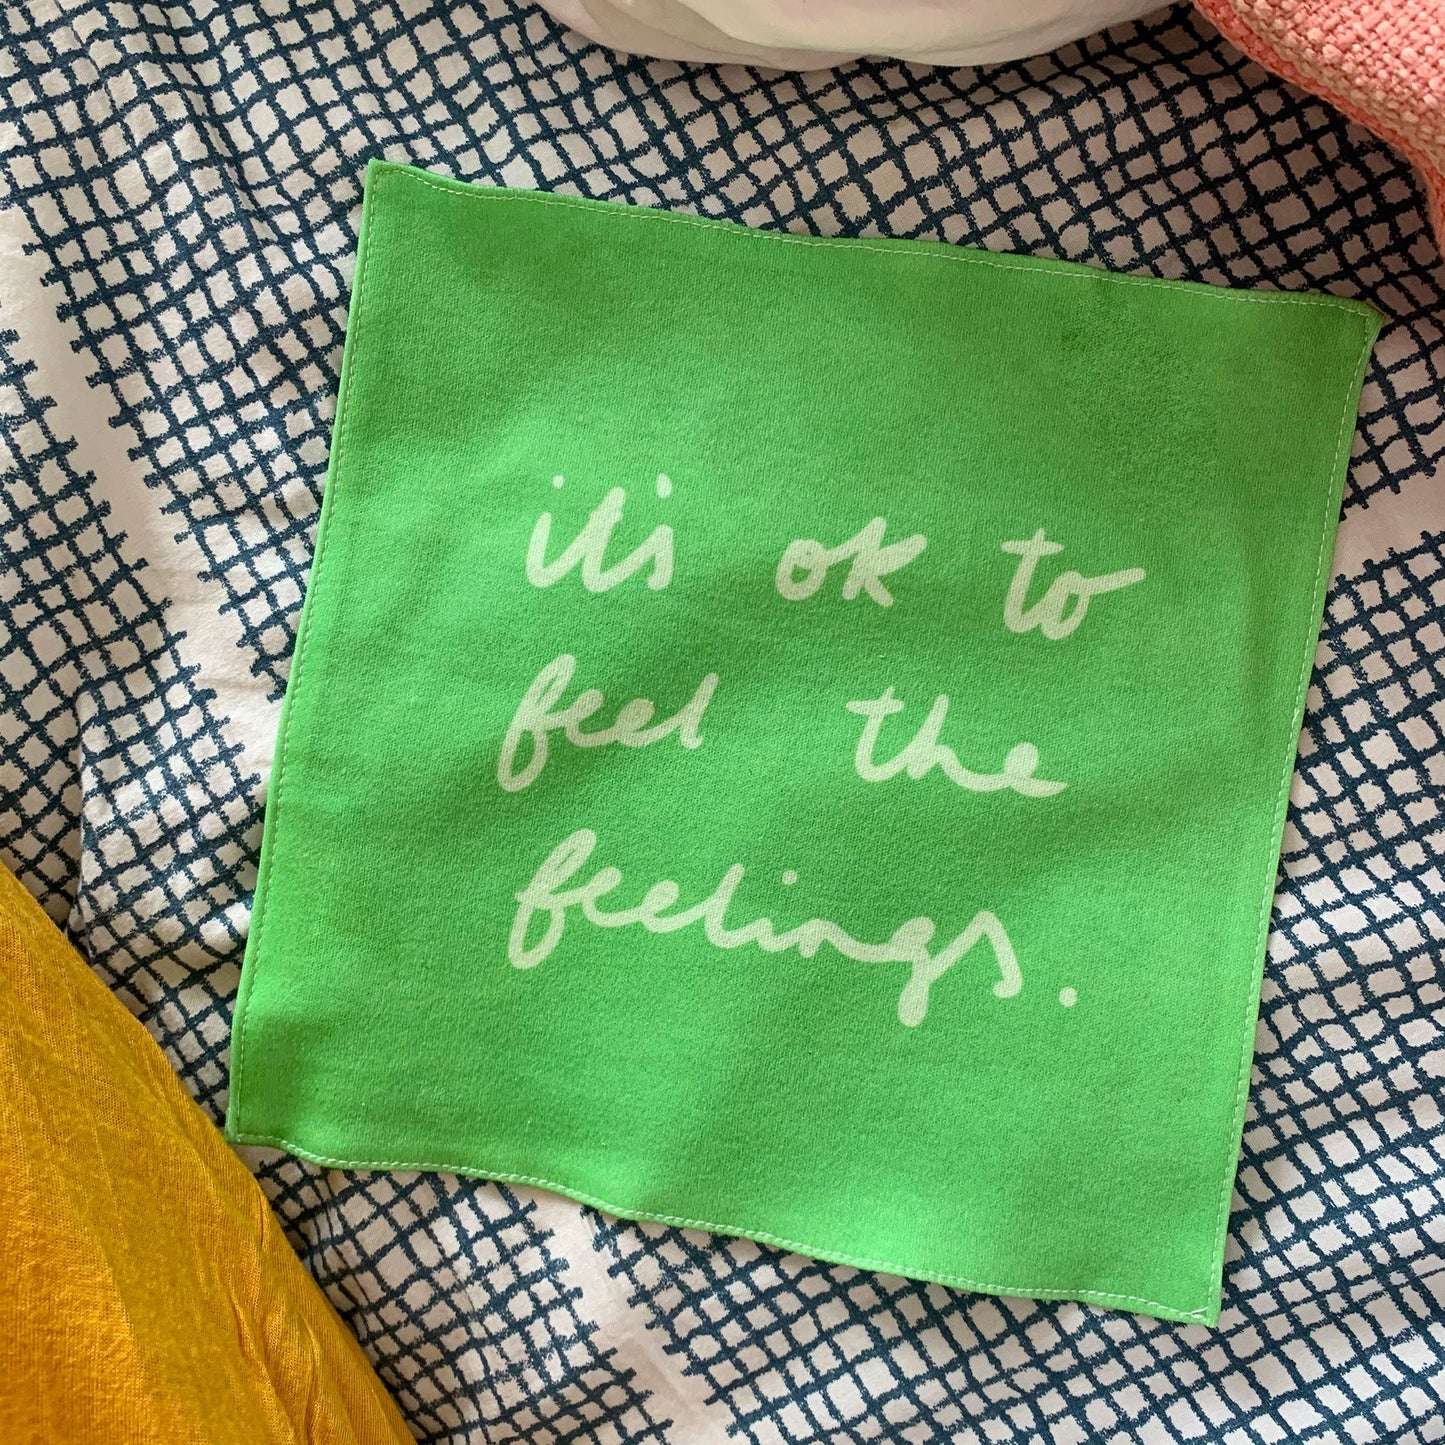 it's ok to
feel the
feelings.